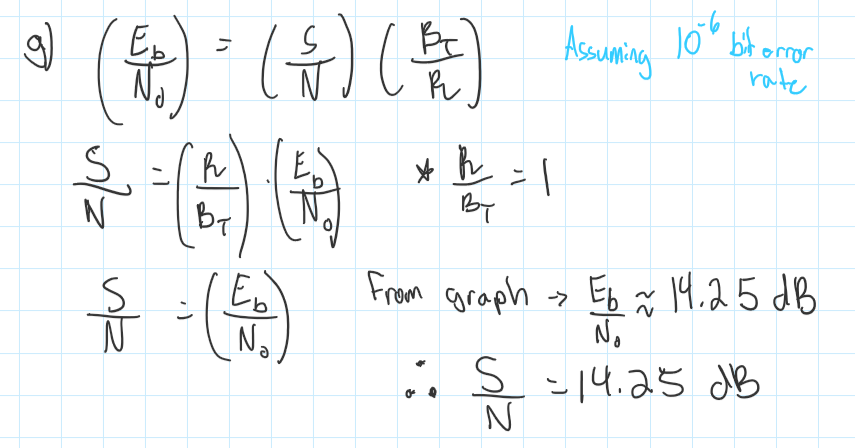 g) (E_b/N_0) = (S/N) (B_T/R) Assuming 10^-6 bit error rate
S/N = (R/B_T) · (E_b/N_0) * R/B_T = 1
S/N = (E_b/N_0) From graph → E_b/N_0 ≈ 14.25 dB
∴ S/N = 14.25 dB